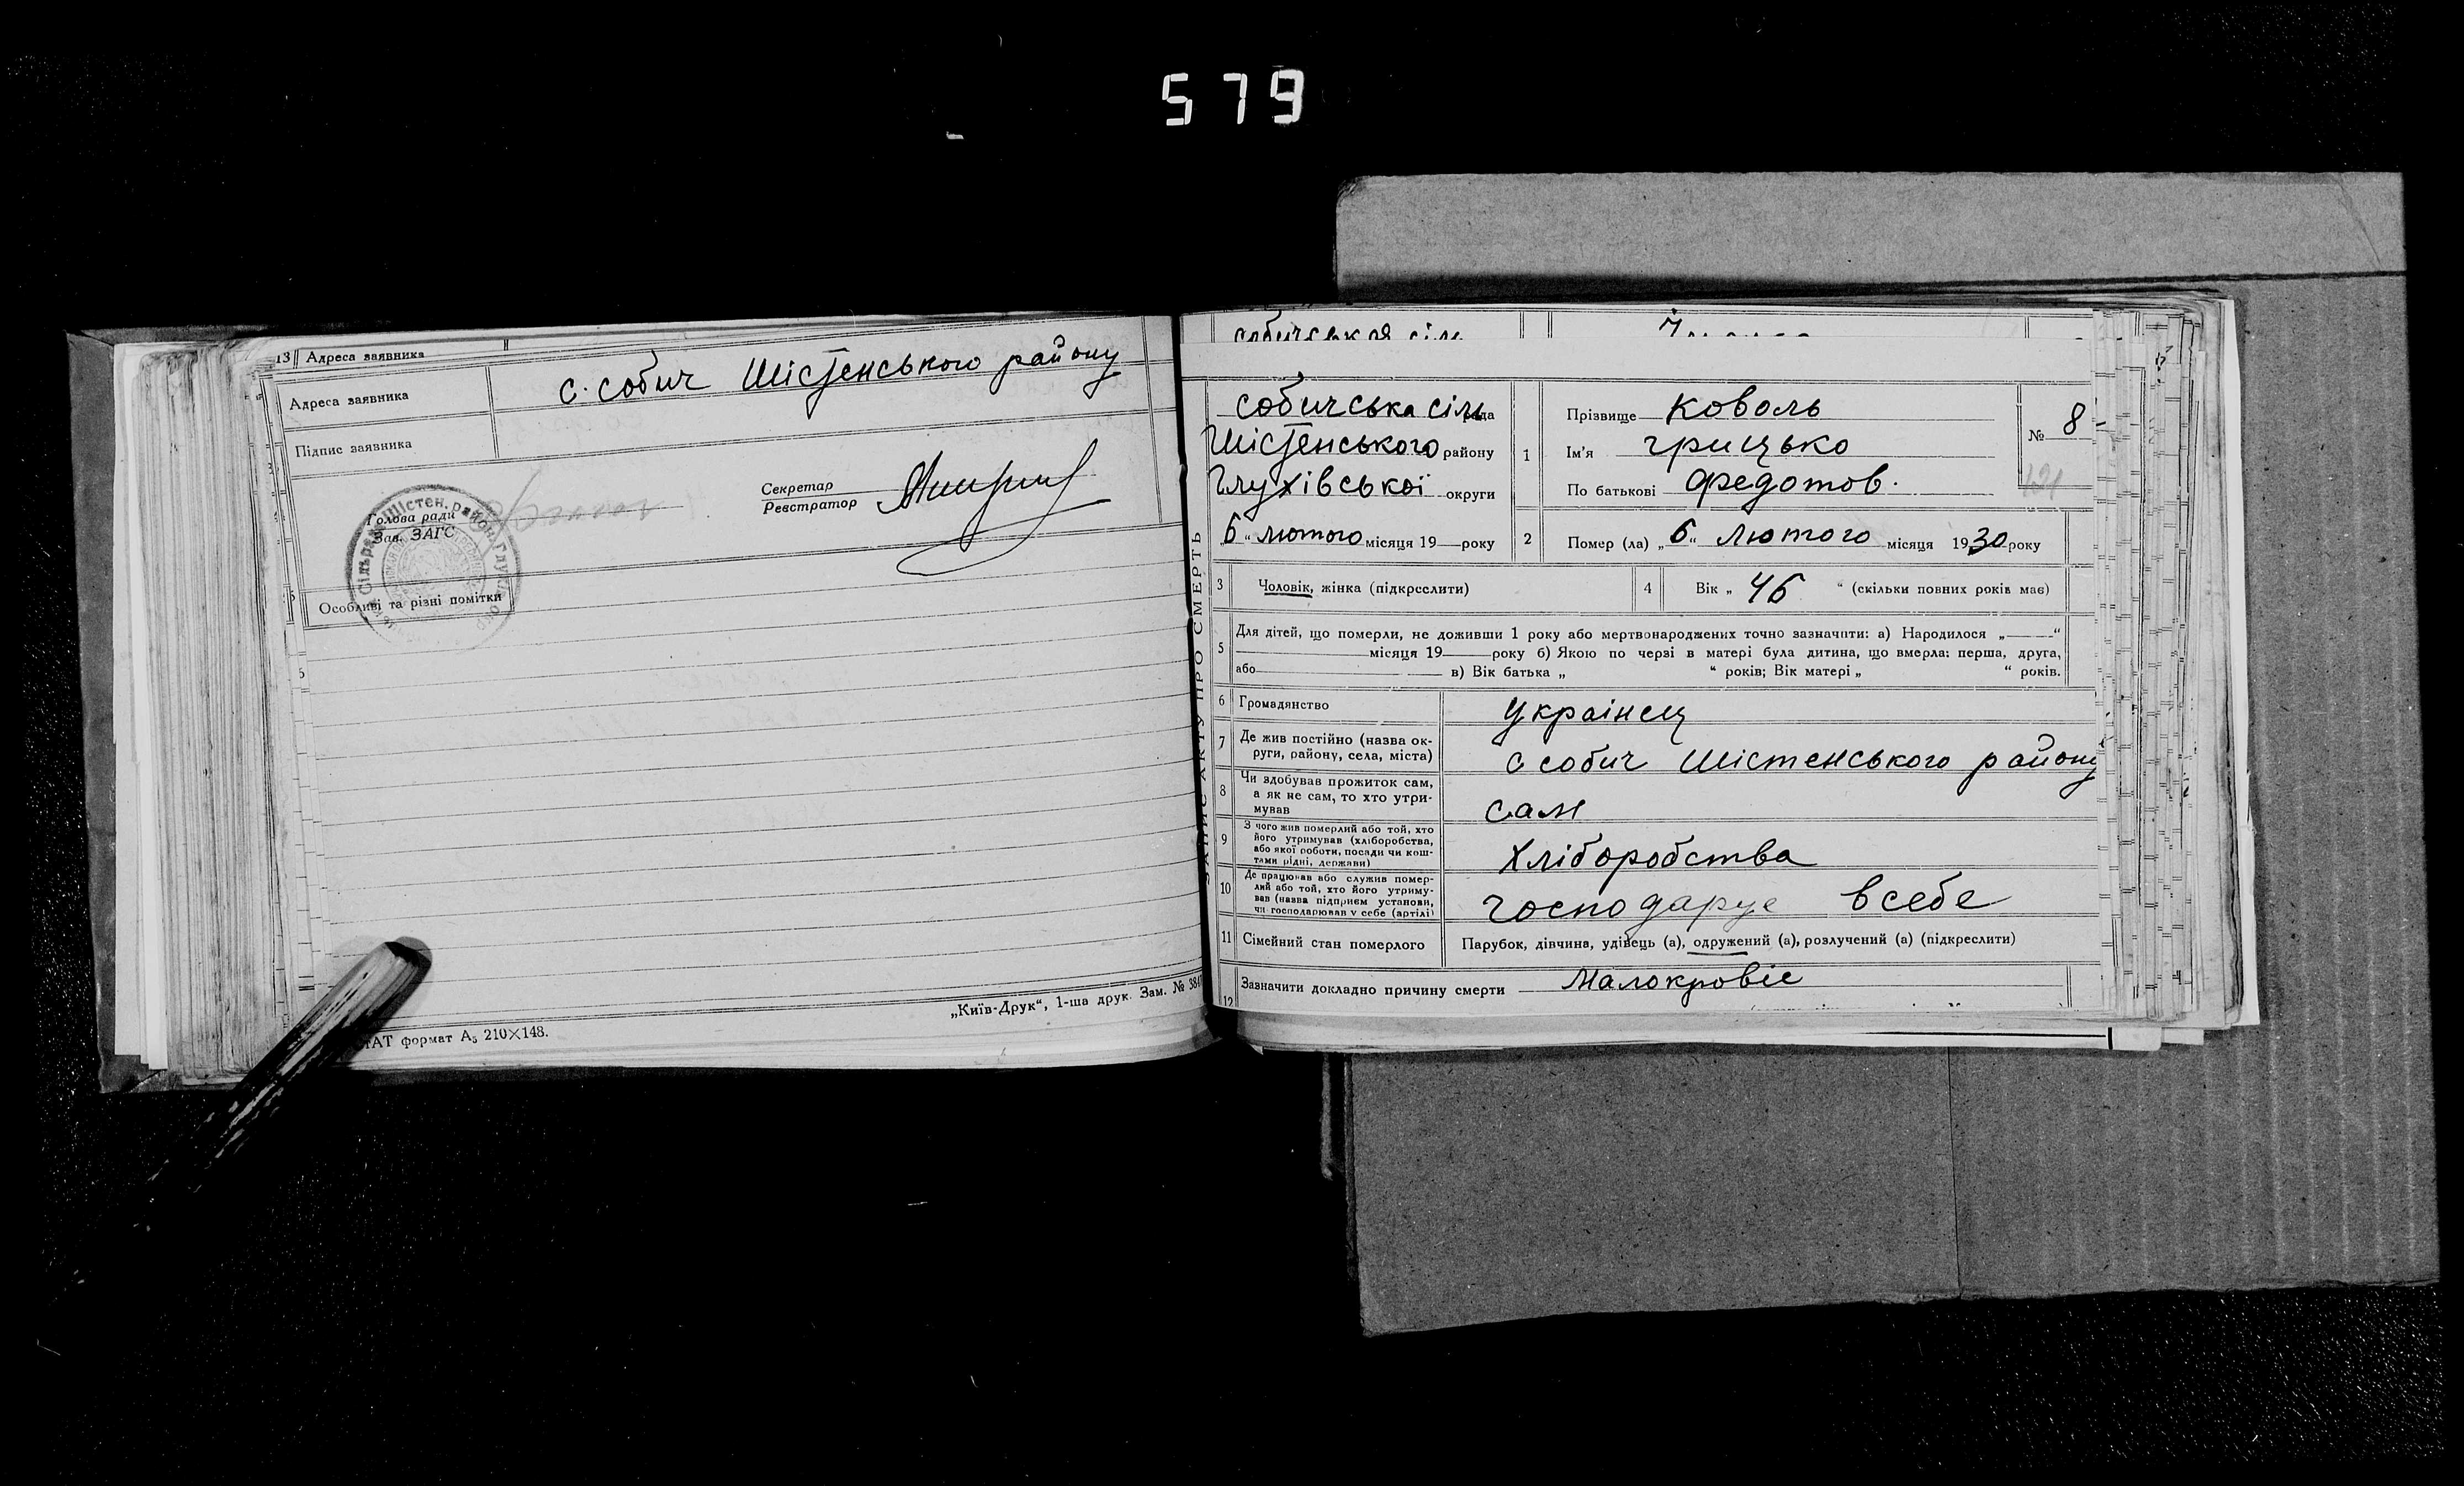 579
13 Адреса заявника
Адреса заявника с. собич Шістенського району
Підпис заявника
Секретар
Реєстратор
Голова ради
Зав. ЗАГС
Шістен. район
Особливі та різні помітки
5
„Київ-Друк“, 1-ша друк. Зам. № 384
формат А₅ 210×148.
собичськая сіль
ЗАПИС АКТУ ПРО СМЕРТЬ
собичська сіль рада
Шістенського району
Глухівської округи
„6“ лютого місяця 19 — року
1 Прізвище Коволь
Ім'я грицько
По батькові Федотов.
№ 8
2 Помер (ла) „6“ лютого місяця 1930 року
3 Чоловік, жінка (підкреслити)
4 Вік „ 46 “ (скільки повних років має)
5 Для дітей, що померли, не доживши 1 року або мертвонароджених точно зазначити: а) Народилося „ — “
місяця 19 — року б) Якою по черзі в матері була дитина, що вмерла: перша, друга,
або — в) Вік батька „ “ років; Вік матері „ “ років.
6 Громадянство українец
7 Де жив постійно (назва ок-
руги, району, села, міста) с собич Шістенського району
8 Чи здобував прожиток сам,
а як не сам, то хто утри-
мував сам
9 З чого жив померлий або той, хто
його утримував (хліборобства,
або якої роботи, посади чи кош-
тами рідні, держави) Хліборобства
10 Де працював або служив помер-
лий або той, хто його утриму-
вав (назва підприєм установи,
чи господарював у себе (артілі) господарує всебе
11 Сімейний стан померлого Парубок, дівчина, удівець (а), одружений (а), розлучений (а) (підкреслити)
12 Зазначити докладно причину смерти Малокровіє